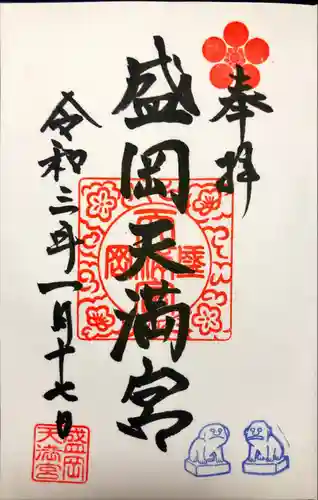 奉拝
盛岡天満宮
令和三年一月十七日
盛岡
天満宮